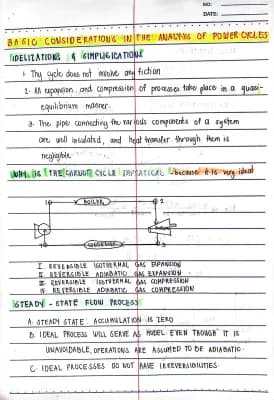 NO:
DATE:
BASIC CONSIDERATIONS IN THE ANALYSIS OF POWER CYCLES
IDELIZATIONS & SIMPLICATIONS
1. Thy cycle does not involve any friction
2. All expansion and compression of processes takes place in a quasi-
equilibrium manner.
3. The pipes connecting the various components of a system
are well insulated, and heat transfer through them is
negligible.
WHY IS THE CARNOT CYCLE IMPRATICAL because it is very ideal
1 BOILER 2
4 CONDENSER 3
I. REVERSIBLE ISOTHERMAL GAS EXPANSION
II. REVERSIBLE ADIABATIC GAS EXPANSION
III. REVERSIBLE ISOTHERMAL GAS COMPRESSION
IV. REVERSIBLE ADIABATIC GAS COMPRESSION
STEADY - STATE FLOW PROCESS
A. STEADY STATE: ACCUMULATION IS ZERO
B. IDEAL PROCESS WILL SERVE AS MODEL. EVEN THOUGH IT IS
UNAVOIDABLE, OPERATIONS ARE ASSUMED TO BE ADIABATIC.
C. IDEAL PROCESSES DO NOT HAVE IRREVERSIBILITIES.